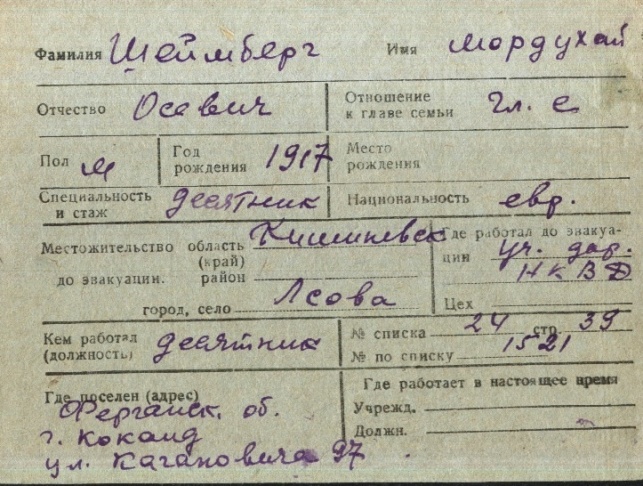 Фамилия Шеймберг Имя Мордухай
Отчество Осевич Отношение к главе семьи Гл. с
Пол м Год рождения 1917 Место рождения
Специальность и стаж десятник Национальность евр.
Местожительство до эвакуации. область (край) Кишиневск
район
город, село Лсова
Где работал до эвакуации уч. дор.
НКВД
Цех
Кем работал (должность) десятник № списка 24 стр. 39
№ по списку 1521
Где поселен (адрес)
Ферганск. об.
г. Коканд
ул. Кагановича 97
Где работает в настоящее время
Учрежд.
Должн.